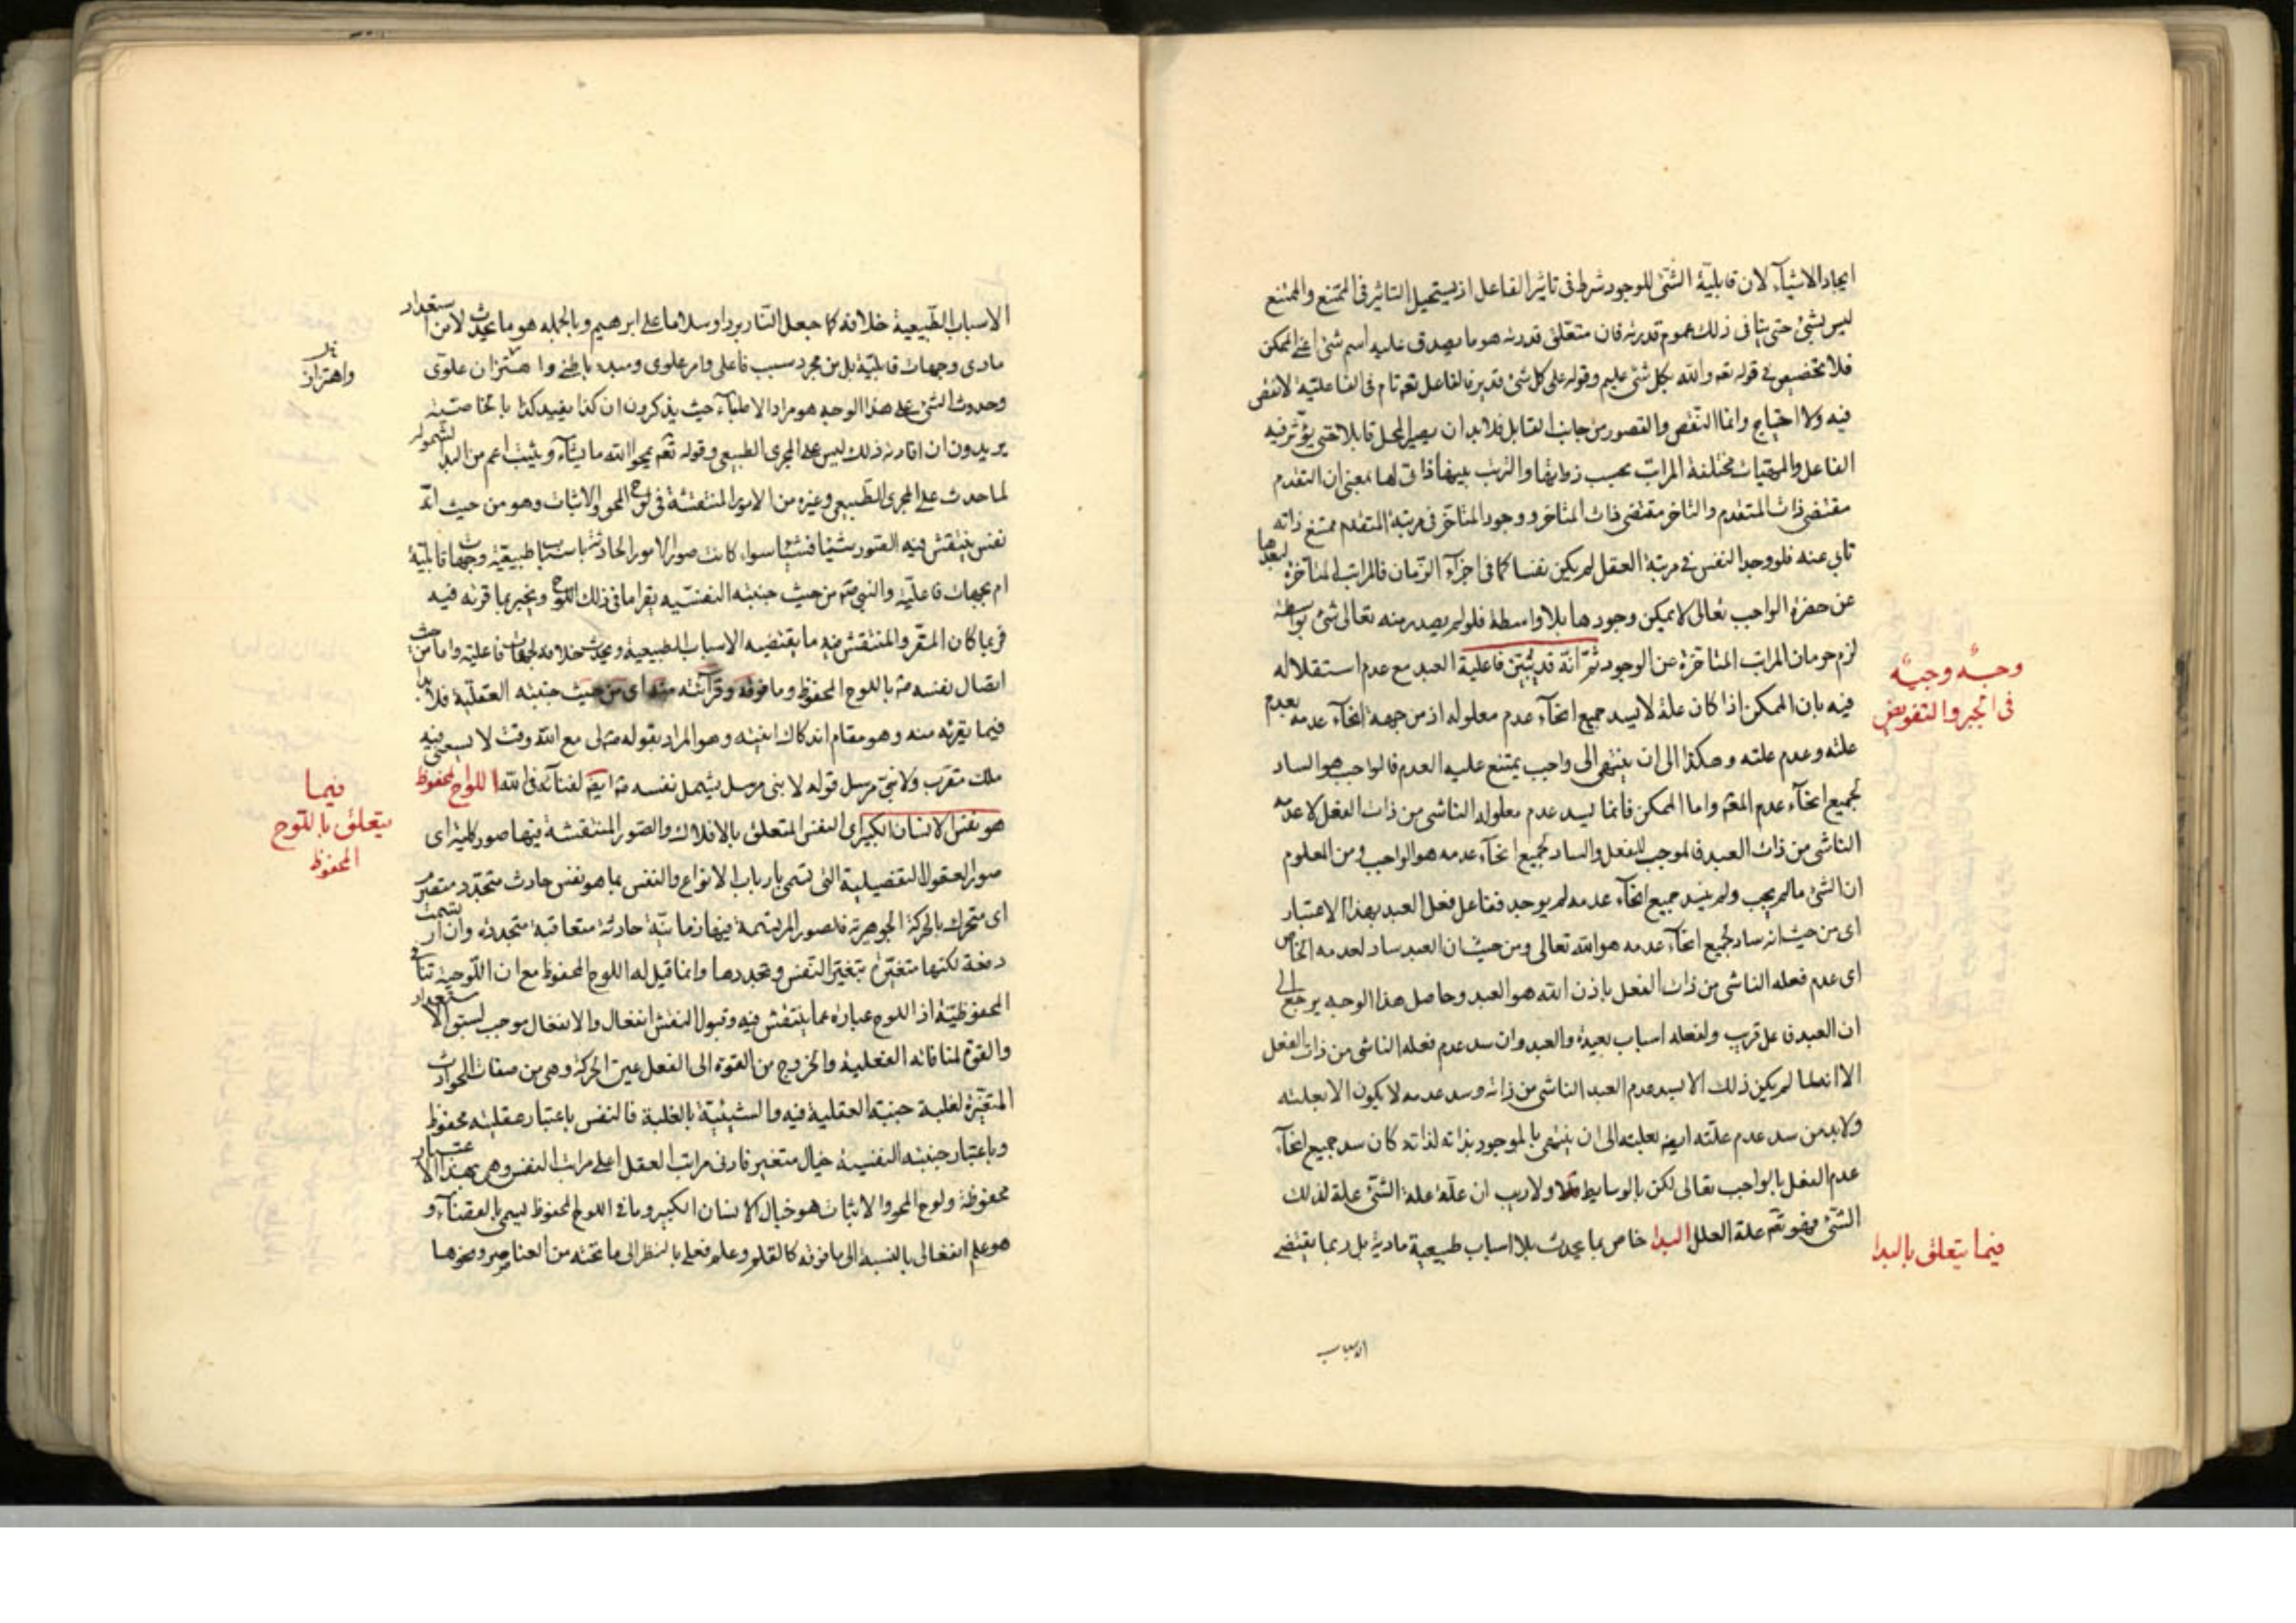 ايجاد الاشياء لان قابلية الشئ للوجود شرط فى تاثير الفاعل اذ يستحيل التاثير فى الممتنع والممتنع
ليس بشئ حتى ينافى ذلك عموم قدرته فان متعلق قدرته هو ما يصدق عليه اسم شئ اعنى الممكن
فلا تخصيص فى قوله تعه والله بكل شئ عليم وقوله على كل شئ قدير فالفاعل تعه تام فى الفاعلية لا نقص
فيه ولا احتياج وانما النقص والقصور من جانب القابل فلابد ان يصير المحل قابلا حتى يؤثر فيه
الفاعل والمهيات مختلفة المراتب بحسب ذواتها والترتب بينها ذاتى لها بمعنى ان التقدم
مقتضى ذات المتقدم والتاخر مقتضى ذات المتاخر ووجود المتاخر فى مرتبة المتقدم ممتنع ذاته
تابى عنه فلو وجد النفس فى مرتبة العقل لم يكن نفسا كما فى اجزاء الزمان فالمراتب المتاخرة لبعدها
عن حضرة الواجب تعالى لا يمكن وجودها بلا واسطة فلو لم يصدر منه تعالى شئ بواسطة
لزم حرمان المراتب المتاخرة عن الوجود ثم انه قد يبين فاعلية العبد مع عدم استقلاله
وجه وجيه
فى الجبر والتفويض
فيه بان الممكن اذا كان علة لا يسد جميع انحاء عدم معلوله اذ من جهة انحاء عدمه بعدم
علته وعدم علته وهكذا الى ان ينتهى الى واجب يمتنع عليه العدم فالواجب هو الساد
لجميع انحاء عدم المعلم واما الممكن فانما يسد عدم معلوله الناشى من ذات الفعل لا عدمه
الناشى من ذات العبد فالموجب للفعل والساد لجميع انحاء عدمه هو الواجب ومن المعلوم
ان الشئ مالم يجب ولم ينسد جميع انحاء عدمه لم يوجد ففاعل فعل العبد بهذا الاعتبار
اى من حيث انه ساد لجميع انحاء عدمه هو الله تعالى ومن حيث ان العبد ساد لعدمه الخاص
اى عدم فعله الناشى من ذات الفعل باذن الله هو العبد وحاصل هذا الوجه يرجع الى
ان العبد فاعل قريب ولفعله اسباب بعيدة والعبد وان سد عدم فعله الناشى من ذات الفعل
الا انه لما لم يكن ذلك الا بسد عدم العبد الناشى من ذاته وسد عدمه لا يكون الا بعلته
ولابد من سد عدم علته ايضه بعلته الى ان ينتهى بالموجود بذاته لذاته كان سد جميع انحاء
عدم الفعل بالواجب تعالى لكن بالوسايط ولا ريب ان علة علة الشئ علة لذلك
الشئ فهو تعه علة العلل البدا خاص بما يحدث بلا اسباب طبيعية مادية بل ربما يقتضى
فيما يتعلق بالبدا
الاسباب
الاسباب الطبيعية خلافه كما جعل النار بردا وسلاما على ابرهيم وبالجملة هو ما يحدث لا من استعداد
مادى وجهات قابلية بل من مجرد سبب فاعلى وامر علوى ومبدء باطنى واهتزاز علوى
واهتزاز
وحدوث الشئ على هذا الوجه هو مراد الاطباء حيث يذكرون ان كذا يفيد كذا بالخاصية
يريدون ان افادته ذلك ليس على المجرى الطبيعى وقوله تعه يمحو الله ما يشاء ويثبت اعم من البدا لشموله
لما حدث على المجرى الطبيعى وغيره من الامور المنتقشة فى لوح المحو والاثبات وهو من حيث انه
نفس ينتقش فيه الصور شيئا فشيئا سواء كانت صور الامور الحادثة باسباب طبيعية وجهات قابلية
ام بجهات فاعلية والنبى من حيث جنبته النفسيه يقرا ما فى ذلك اللوح ويخبر بما قرئه فيه
فربما كان المقر والمنتقش فيه ما يقتضيه الاسباب الطبيعية ويحدث خلافه لجهات فاعلية واما من حيث
اتصال نفسه باللوح المحفوظ وما فوقه وقرائته منه اى من حيث جنبته العقلية فلا بدا
فيما يقرئه منه وهو مقام اندكاك انيته وهو المراد بقوله لى مع الله وقت لا يسعنى فيه
ملك مقرب ولا نبى مرسل قوله لا نبى مرسل يشمل نفسه ايضه لفنائه فى الله اللوح المحفوظ
فيما
يتعلق باللوح
المحفوظ
هو نفس الانسان الكبير اى النفس المتعلق بالافلاك والصور المنتقشة فيها صور كلية اى
صور العقول التفصيلية التى تسمى بارباب الانواع والنفس بما هو نفس حادث متجدد متصرم
اى متحرك بالحركة الجوهرية فالصور المرتسمة فيها زمانية حادثة متعاقبة متجددة وان ارتسمت
دفعة لكنها متغيرة بتغير النفس وتجددها وانما قيل له اللوح المحفوظ مع ان اللوحية تنافى
المحفوظية اذ اللوح عبارة عما ينتقش فيه وقبول النقش انفعال والانفعال موجب لسبق الاستعداد
والقوة لمنافاته الفعلية والخروج من القوة الى الفعل عين الحركة وهى من صفات الحوادث
المتغيرة لغلبة جنبته العقلية فيه والشيئية بالغلبة فالنفس باعتبار عقليته محفوظ
وباعتبار جنبته النفسية خيال متغير فادنى مراتب العقل اعلى مراتب النفس وهى بهذا الاعتبار
محفوظة ولوح المحو والاثبات هو خيال الانسان الكبير وما فى اللوح المحفوظ يسمى بالقضاء و
هو علم انفعالى بالنسبة الى ما فوقه كالقلم وعلم فعلى بالنظر الى ما تحته من العناصر ونحوها